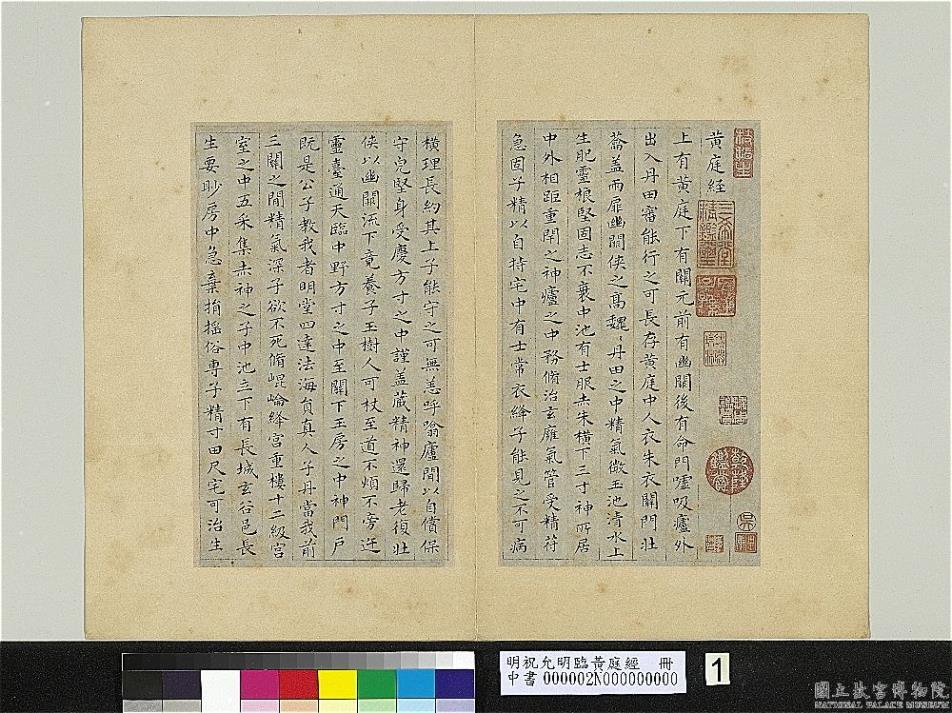 黃庭經
上有黃庭下有關元前有幽關後有命門噓吸廬外
出入丹田審能行之可長存黃庭中人衣朱衣關門壯
籥蓋兩扉幽關俠之高魏、丹田之中精氣微玉池清水上
生肥靈根堅固志不衰中池有士服赤朱橫下三寸神所居
中外相距重閉之神廬之中務脩治玄廱氣管受精符
急固子精以自持宅中有士常衣絳子能見之不可病
橫理長約其上子能守之可無恙呼噏廬間以自償保
守兒堅身受慶方寸之中謹蓋藏精神還歸老復壯
俠以幽關流下竟養子玉樹人可杖至道不煩不旁迕
靈臺通天臨中野方寸之中至關下玉房之中神門戶
既是公子教我者明堂四達法海員真人子丹當我前
三關之間精氣深子欲不死脩崐崘絳宮重樓十二級宮
室之中五采集赤神之子中池立下有長城玄谷邑長
生要眇房中急棄捐搖俗專子精寸田尺宅可治生
明祝允明臨黃庭經 冊
中書 000002N000000000
1
國立故宮博物院
NATIONAL PALACE MUSEUM